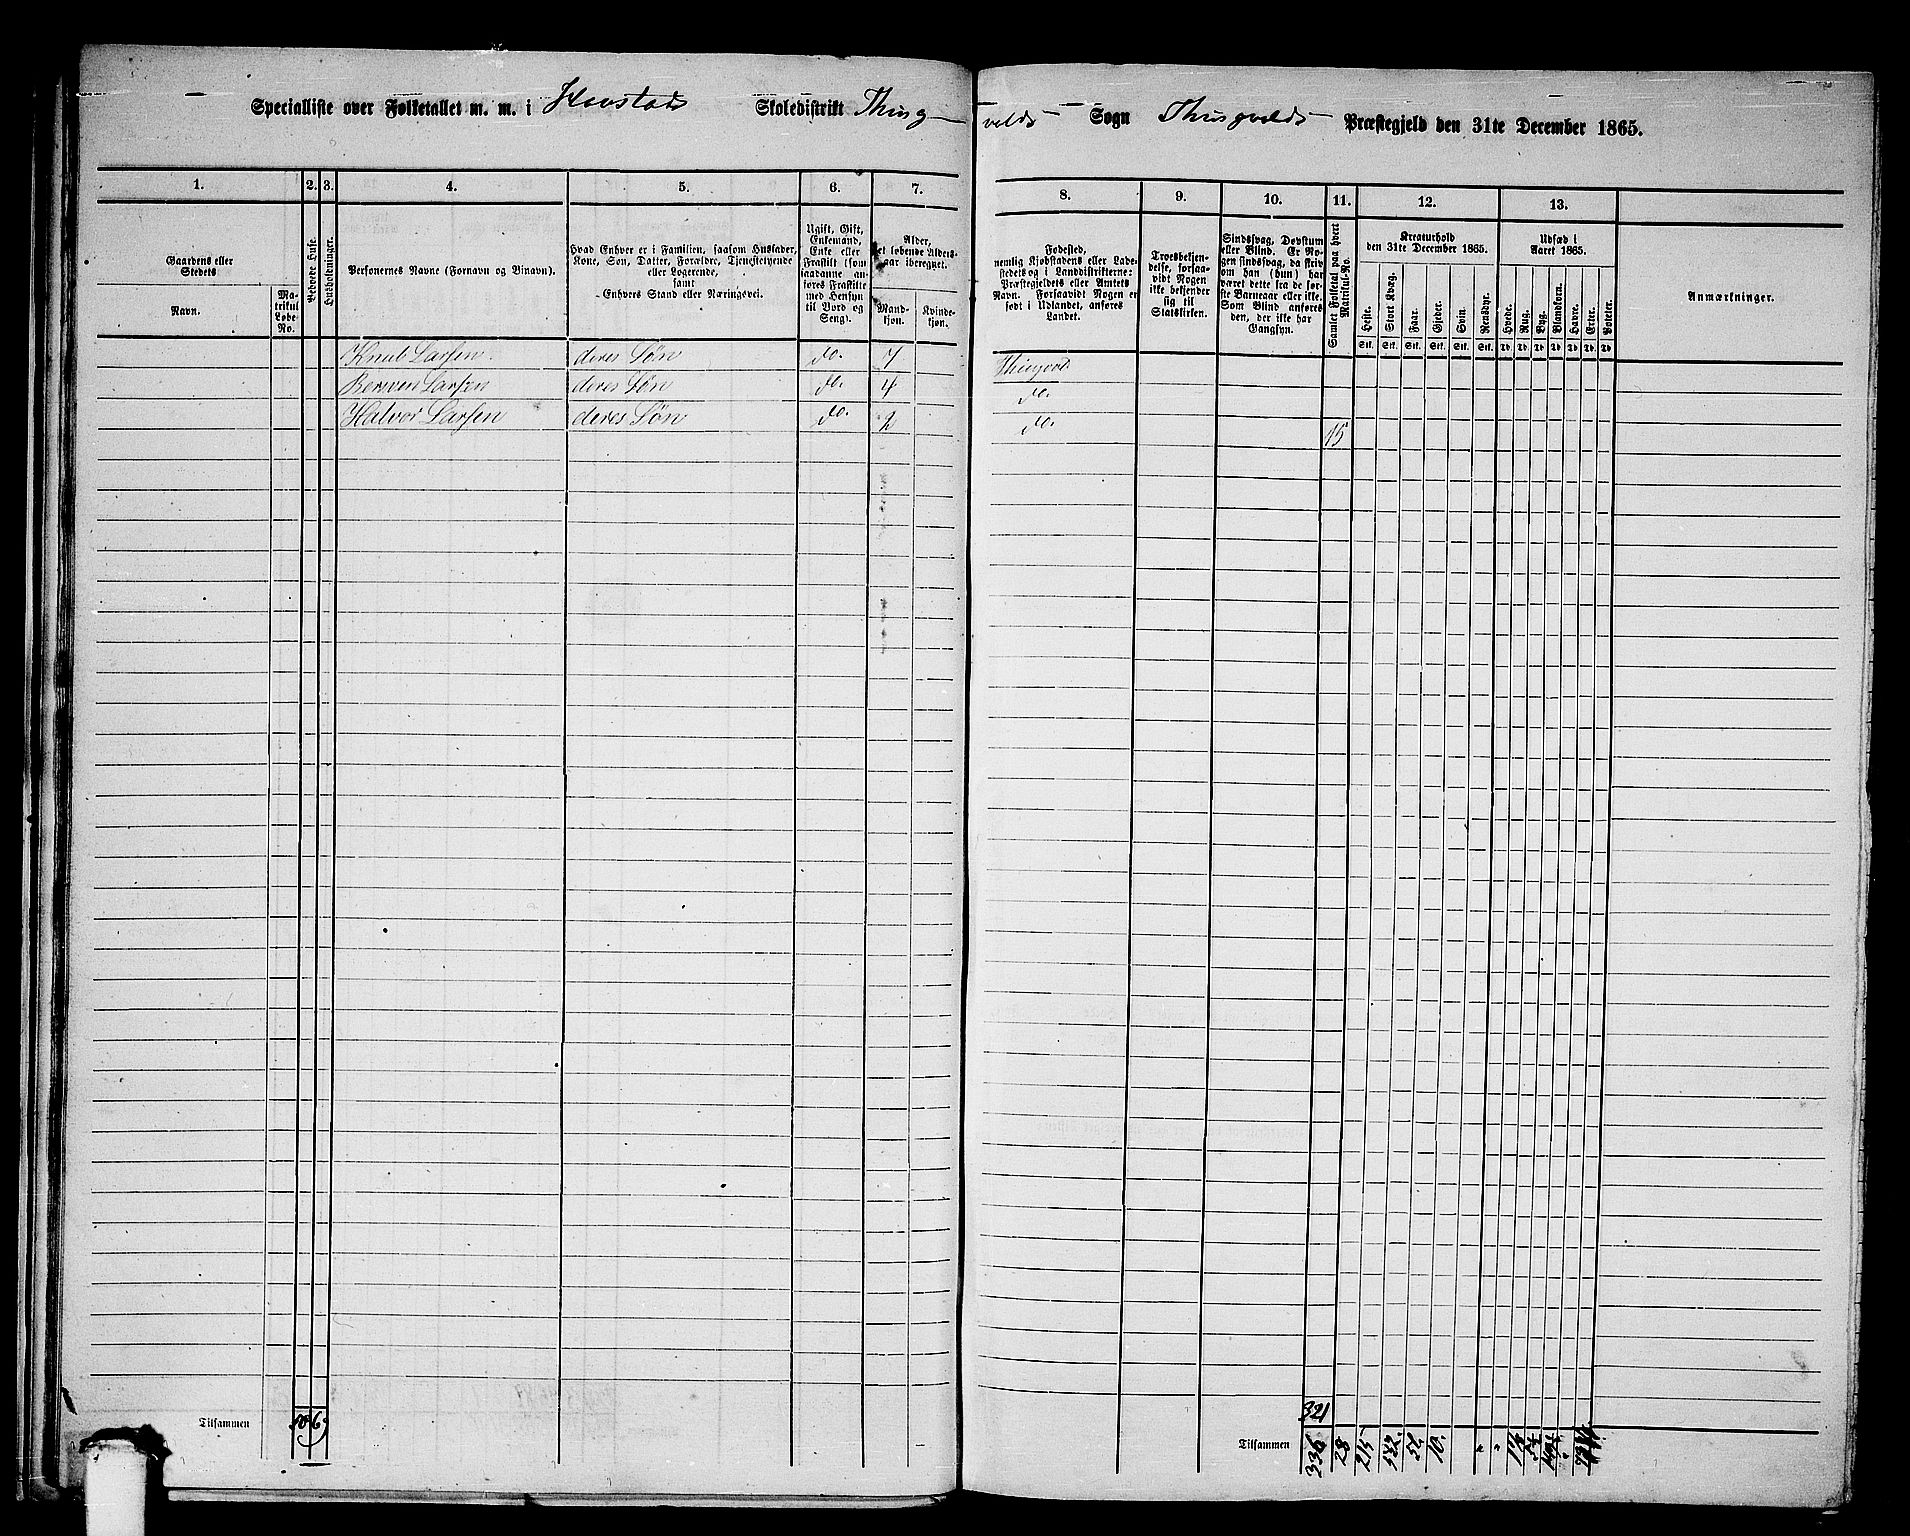 Specialliste over Folketallet m. m. i Havstads Skoledistrikt Thing-
velds Sogn Thingvelds Præstegjeld den 31te December 1865.
1. 2. 3. 4. 5. 6. 7.
8. 9. 10. 11. 12. 13.
Gaardens eller Stedets
Navn.
Matrikul Løbe-No.
Beboede Huse.
Husholdninger.
Personernes Navne (Fornavn og Binavn).
Hvad Enhver er i Familien, saasom Husfader, Kone, Søn, Datter, Forældre, Tjenestetyende eller Logerende, samt Enhvers Stand eller Næringsvei.
Ugift, Gift, Enkemand, Enke eller Fraskilt (som saadanne anføres Fraskilte med Hensyn til Bord og Seng).
Alder, det løbende Aldersaar iberegnet.
Mandkjøn.
Kvindekjøn.
Fødested, nemlig Kjøbstadens eller Ladestedets og i Landdistrikterne: Præstegjeldets eller Amtets Navn. Forsaavidt Nogen er født i Udlandet, anføres Landet.
Troesbekjendelse, forsaavidt Nogen ikke bekjender sig til Statskirken.
Sindssvag, Døvstum eller Blind. Er Nogen sindssvag, da skriv om han (hun) har været dette fra de første Barneaar eller ikke. Som Blind anføres den, der ikke har Gangsyn.
Samlet Folketal paa hvert Matrikul-No.
Kreaturhold den 31te December 1865.
Heste. Stort Kvæg. Faar. Gjeder. Svin. Rensdyr.
Stk. Stk. Stk. Stk. Stk. Stk.
Udsæd i Aaret 1865.
Hvede. Rug. Byg. Blandkorn. Havre. Erter. Poteter.
Anmærkninger.
Knut Larsen deres Søn do. 7 Thingvold
Bersven Larsen deres Søn do. 4 do.
Halvor Larsen deres Søn do. 2 do. 15
Tilsammen
321
Tilsammen 336 28 215